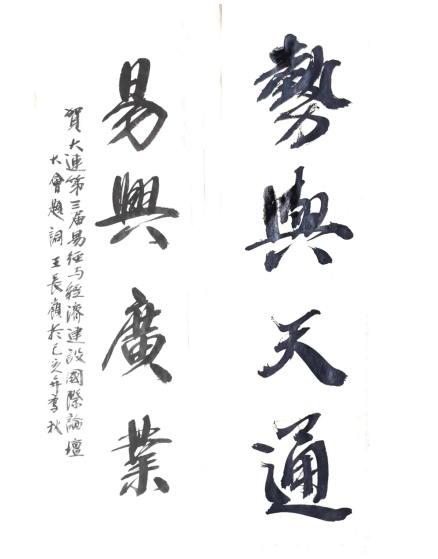 勢與天通
易興廣業
賀大連第三届易经与经濟建設國際論壇
大會題詞王長嶺於己亥年季秋